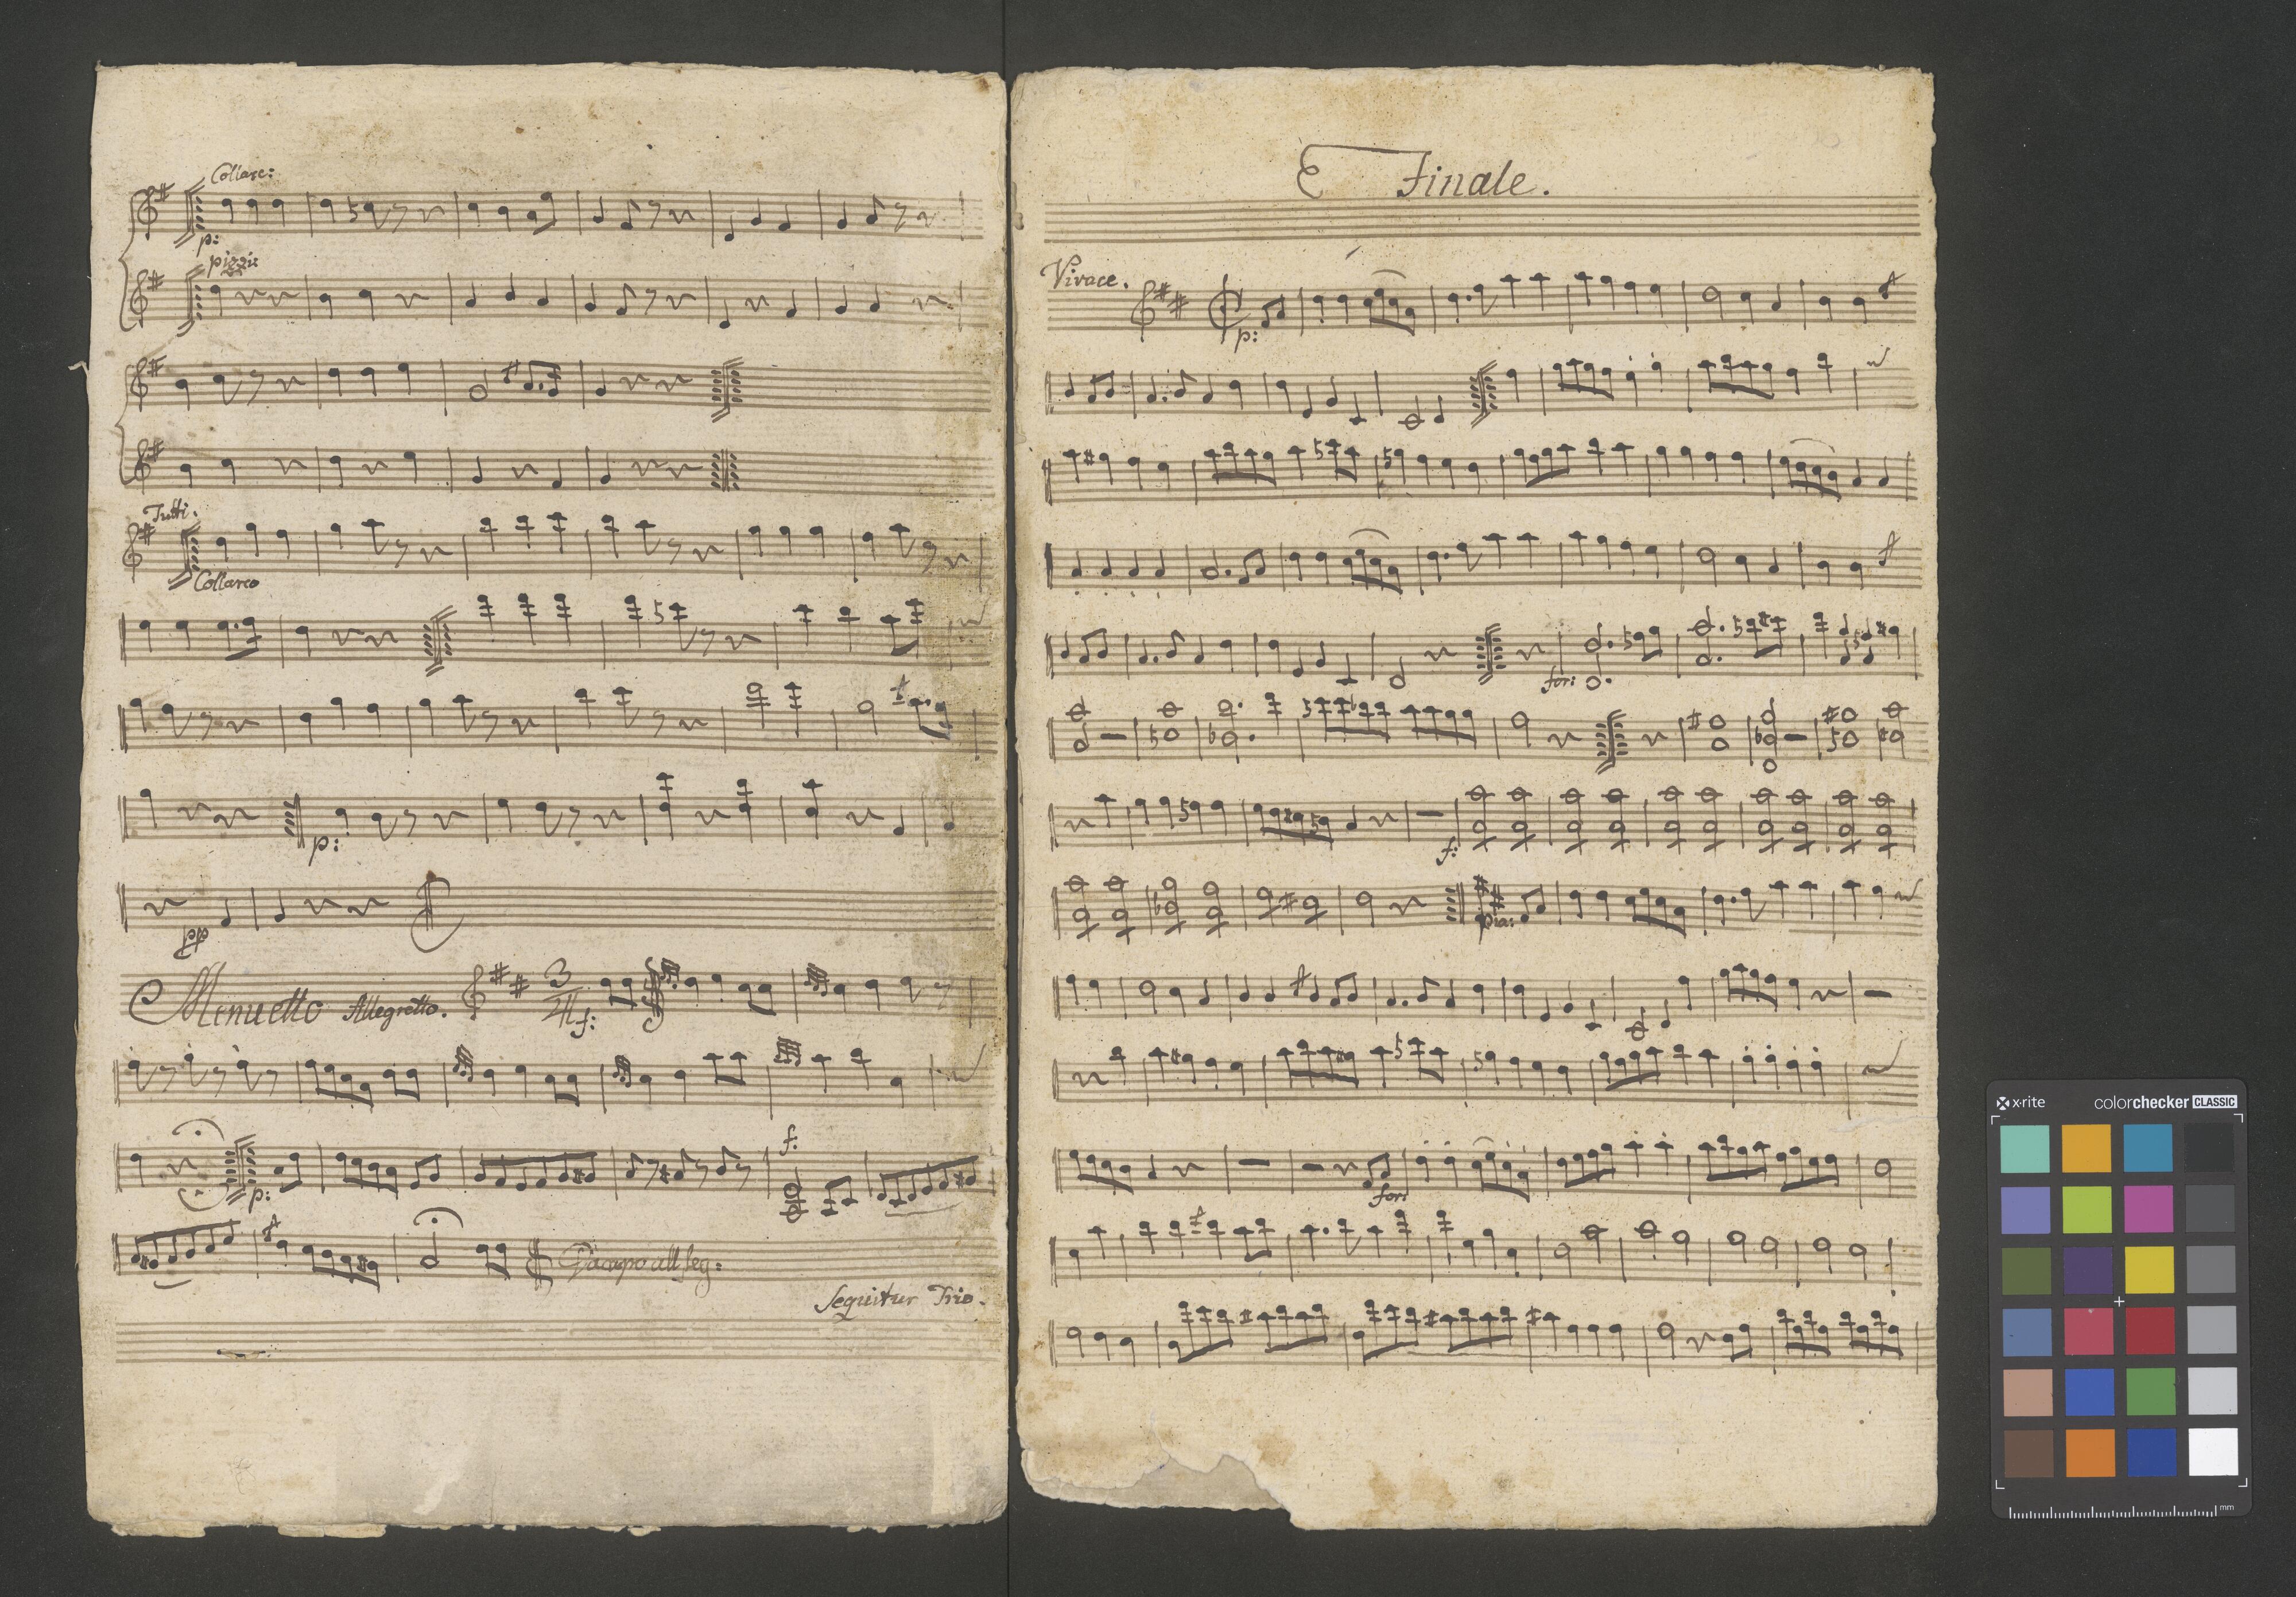 Collarc:
p:
pizzi:
Tutti.
Collarco
p:
pp
Menuetto Allegretto. 3/4 f:
f.
p:
Dacapo all Seg:
Sequitur Trio.
Finale.
Vivace.
p:
for:
f:
pia:
for:
x-rite colorchecker CLASSIC
mm